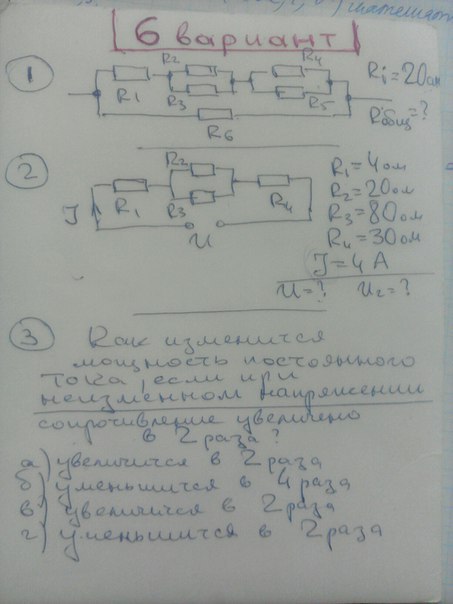 математ
6 вариант
1
R1
R2
R3
R4
R5
R6
Ri=20ом
Rобщ=?
2
J
R1
R2
R3
R4
U
R1=4ом
R2=20ом
R3=80ом
R4=30ом
J=4А
U=? U2=?
3 Как изменится
мощность постоянного
тока, если при
неизменном напряжении
сопротивление увеличено
в 2 раза?
а) увеличится в 2 раза
б) уменьшится в 4 раза
в) увеличится в 2 раза
г) уменьшится в 2 раза